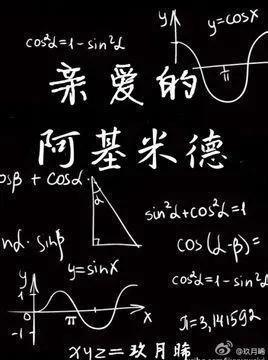 cos²α=1-sin²α
y
y=cosx
π
x
亲爱的
阿基米德
osβ + cosα
α
sin²α+cos²α=1
nα·sinβ
cos(α-β)=
y
y=sinx
cos²α=1-sin²α
1
0
π
x
-1
π=3,141592
xyz=玖月晞
@玖月晞